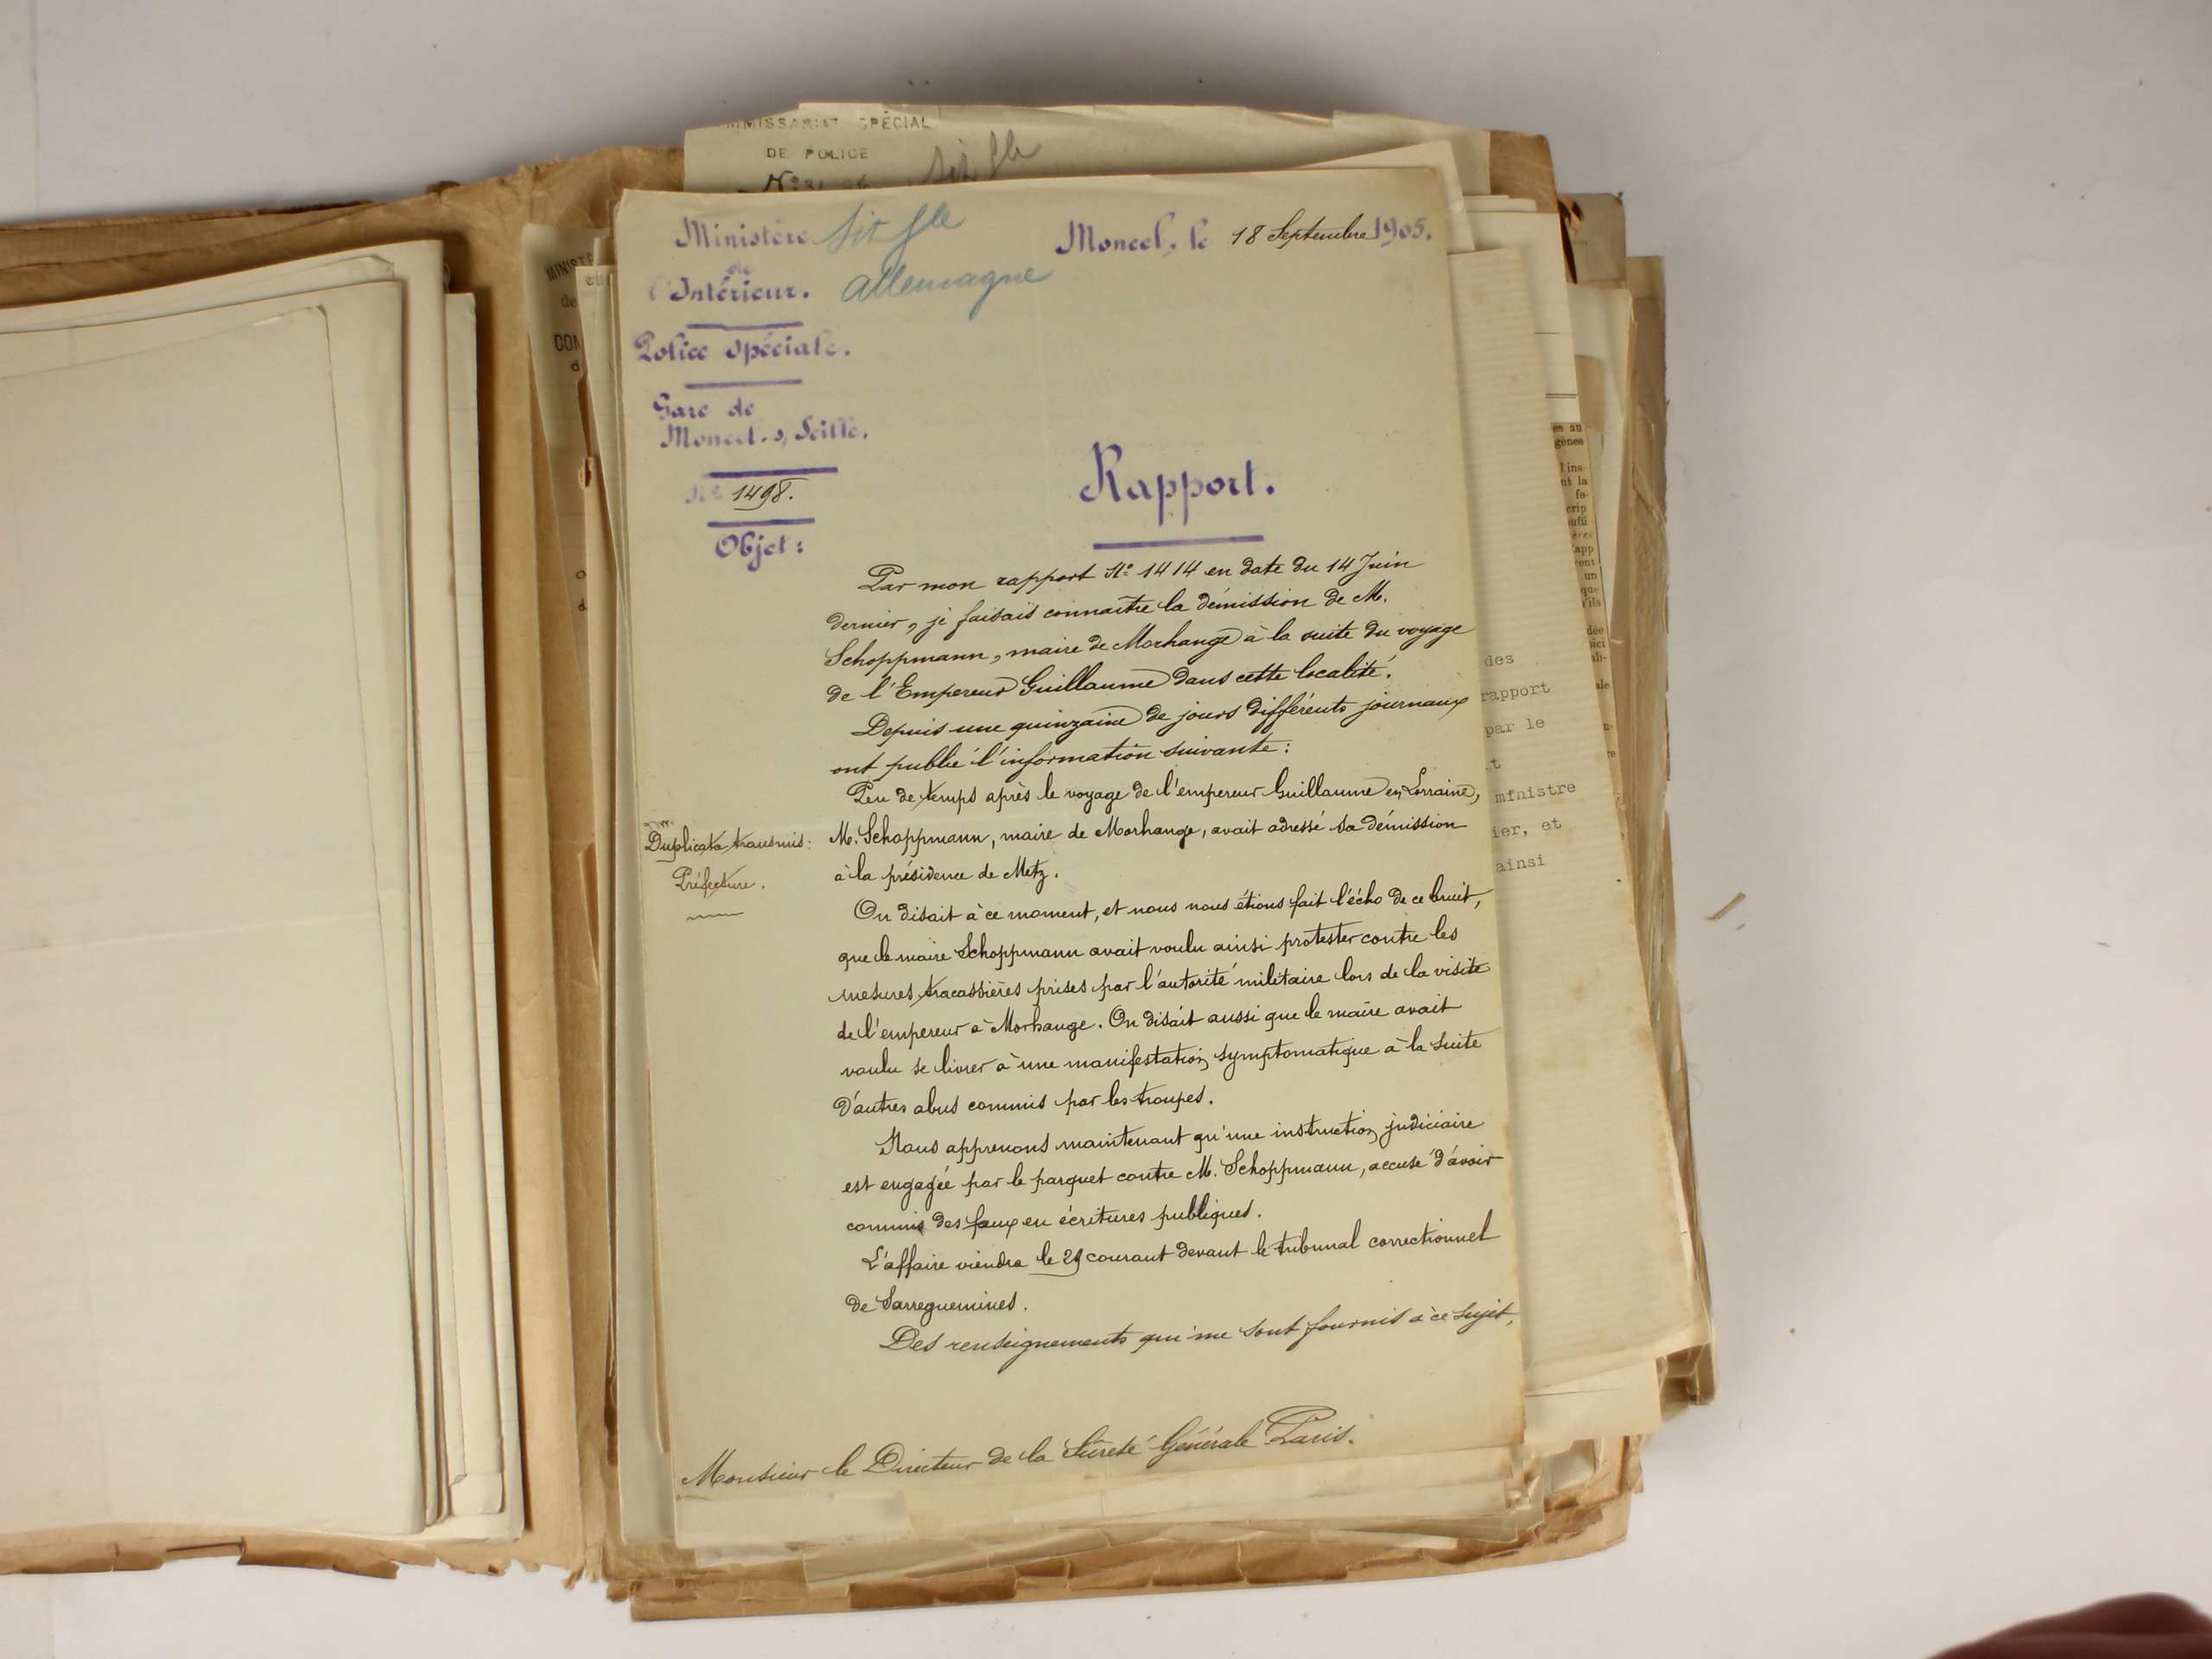 SPÉCIAL
DE POLICE
Ministère
de
l'Intérieur.
Sit Gle
Allemagne
Moncel, le 18 Septembre 1905.
Police Spéciale.
Gare de
Moncel-s/Seille.
N° 1498.
Objet :
Rapport.
Par mon rapport N° 1414 en date du 14 Juin
dernier, je faisais connaître la démission de M.
Schoppmann, maire de Morhange à la suite du voyage
de l'Empereur Guillaume dans cette localité.
Depuis une quinzaine de jours différents journaux
ont publié l'information suivante :
Peu de temps après le voyage de l'empereur Guillaume en Lorraine,
M. Schoppmann, maire de Morhange, avait adressé sa démission
à la présidence de Metz.
On disait à ce moment, et nous nous étions fait l'écho de ce bruit,
que le maire Schoppmann avait voulu ainsi protester contre les
mesures tracassières prises par l'autorité militaire lors de la visite
de l'empereur à Morhange. On disait aussi que le maire avait
voulu se livrer à une manifestation symptomatique à la suite
d'autres abus commis par les troupes.
Nous apprenons maintenant qu'une instruction judiciaire
est engagée par le parquet contre M. Schoppmann, accusé d'avoir
commis des faux en écritures publiques.
L'affaire viendra le 29 courant devant le tribunal correctionnel
de Sarreguemines.
Des renseignements qui me sont fournis à ce sujet,
Duplicata transmis :
Préfecture.
Monsieur le Directeur de la Sûreté Générale Paris.
des
rapport
par le
ministre
ier, et
ainsi